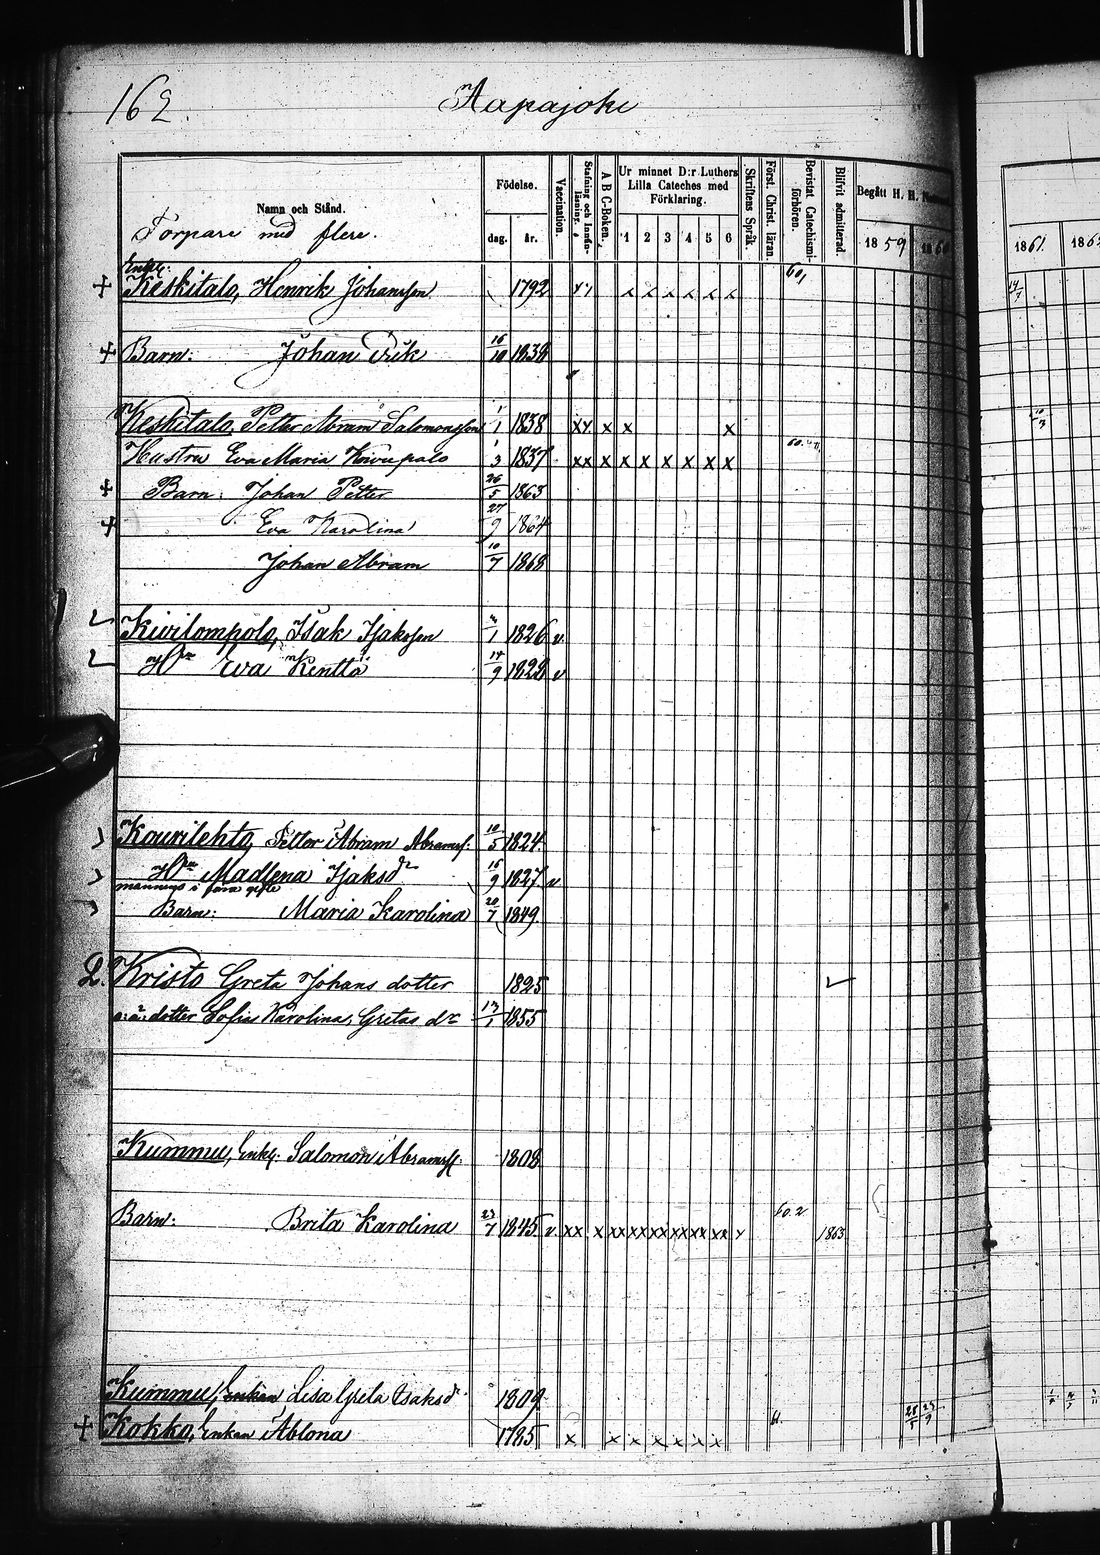 162.
Aapajoki
Namn och Stånd.
Torpare med flere.
Födelse.
dag. år.
Vaccination.
Stafning och Innanläsning.
A B C-Boken.
Ur minnet D:r Luthers Lilla Cateches med Förklaring.
1 2 3 4 5 6
Skriftens Språk.
Först. Christ. läran.
Bevistat Catechismiförhören.
Blifvit admitterad.
Begått H. H.
1859 1860 1861. 1862
Enkl:
+ Keskitalo, Henrik Johansson 1792 x x x x x x 60,
+ Barn: Johan Erik 16/10 1838
Keskitalo, Petter Abram Salomonsson 1/1 1838 xx x x x
Hustru Eva Maria Koivupalo 1/3 1837 xx x x x x x x x 60.
+ Barn: Johan Petter 26/5 1863
+ Eva Karolina 27/9 1864
Johan Abram 10/7 1868
Kivilompolo, Isak Isaksson 1826 v.
H:n Eva Kenttä 14/9 1828 v
Kourilehto, Petter Abram Abramss: 10/5 1824
H:n Madlena Isaksdr 16/9 1827 v
Barn: Maria Karolina 20/7 1849
2. Kristo Greta Johans dotter 1825
o: ä: dotter Sofia Karolina, Gretas dr 13/1 1855
Kummu, Enkl: Salomon Abramss: 1808
Barn: Brita Karolina 23/7 1845 v. xx x xx xx xx xx xx xx 60.2 1863
Kummu, Enkan Lisa Greta Isaksdr 1809
+ Kokko, Enkan Ablona 1785 x x x x x x x 61. 28/5 23/9